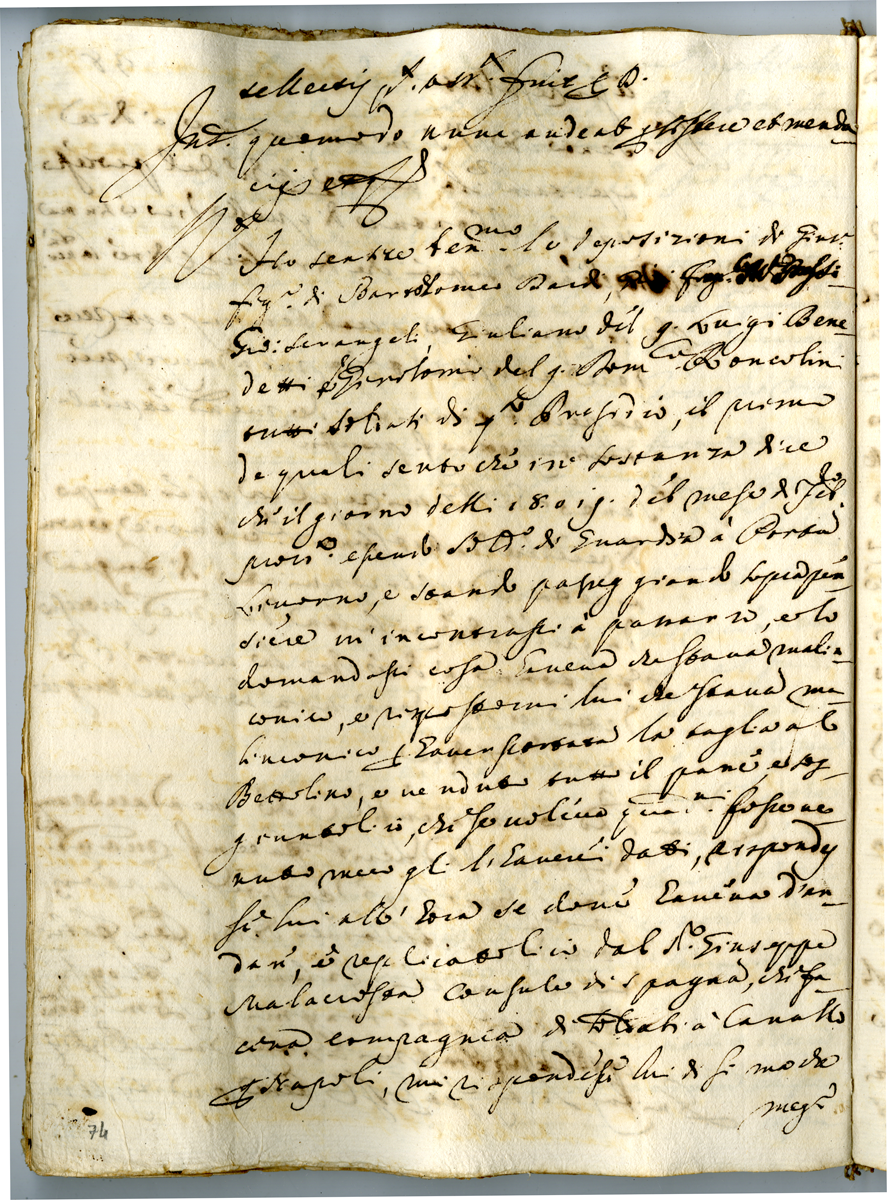 Int. quomodo nunc audeat persistere et menda
cijs
Ho sentito ben.mo le deposizioni di Giu:
fig.o di Bartolomeo Bardi,
Gio: Serangeli, Giuliano del q. Luigi Bene-
detti e Girolamo del q. Dom.co Roncolini
tutti soldati di q.o Presidio, il primo
de quali sento che in sostanza dice
che il giorno delli 18. o 19. del mese di
pross.o essendo sold.o di Guardia à Porta
Livorno, e stando passeggiando sopra pen-
siere m'incontrassi à passare, e lo
domandassi cosa haveva che stava malin-
conico, e rispostemi lui che stava ma-
linconico p haver portata la taglia al
Bettolino, e venduto tutto il pane, e sog-
giuntoli io, che se voleva quattrini fosse ve-
nuto meco gli l'haverei dati, rispondes-
si lui all'hora se dove haveva d'an-
dare, e replicatoli io dal S.r Giuseppe
Malacresta Consule di Spagna, che fa-
ceva compagnia di soldati à Cavallo
p Napoli, mi rispondessi lui di si ma che
meg.o
74